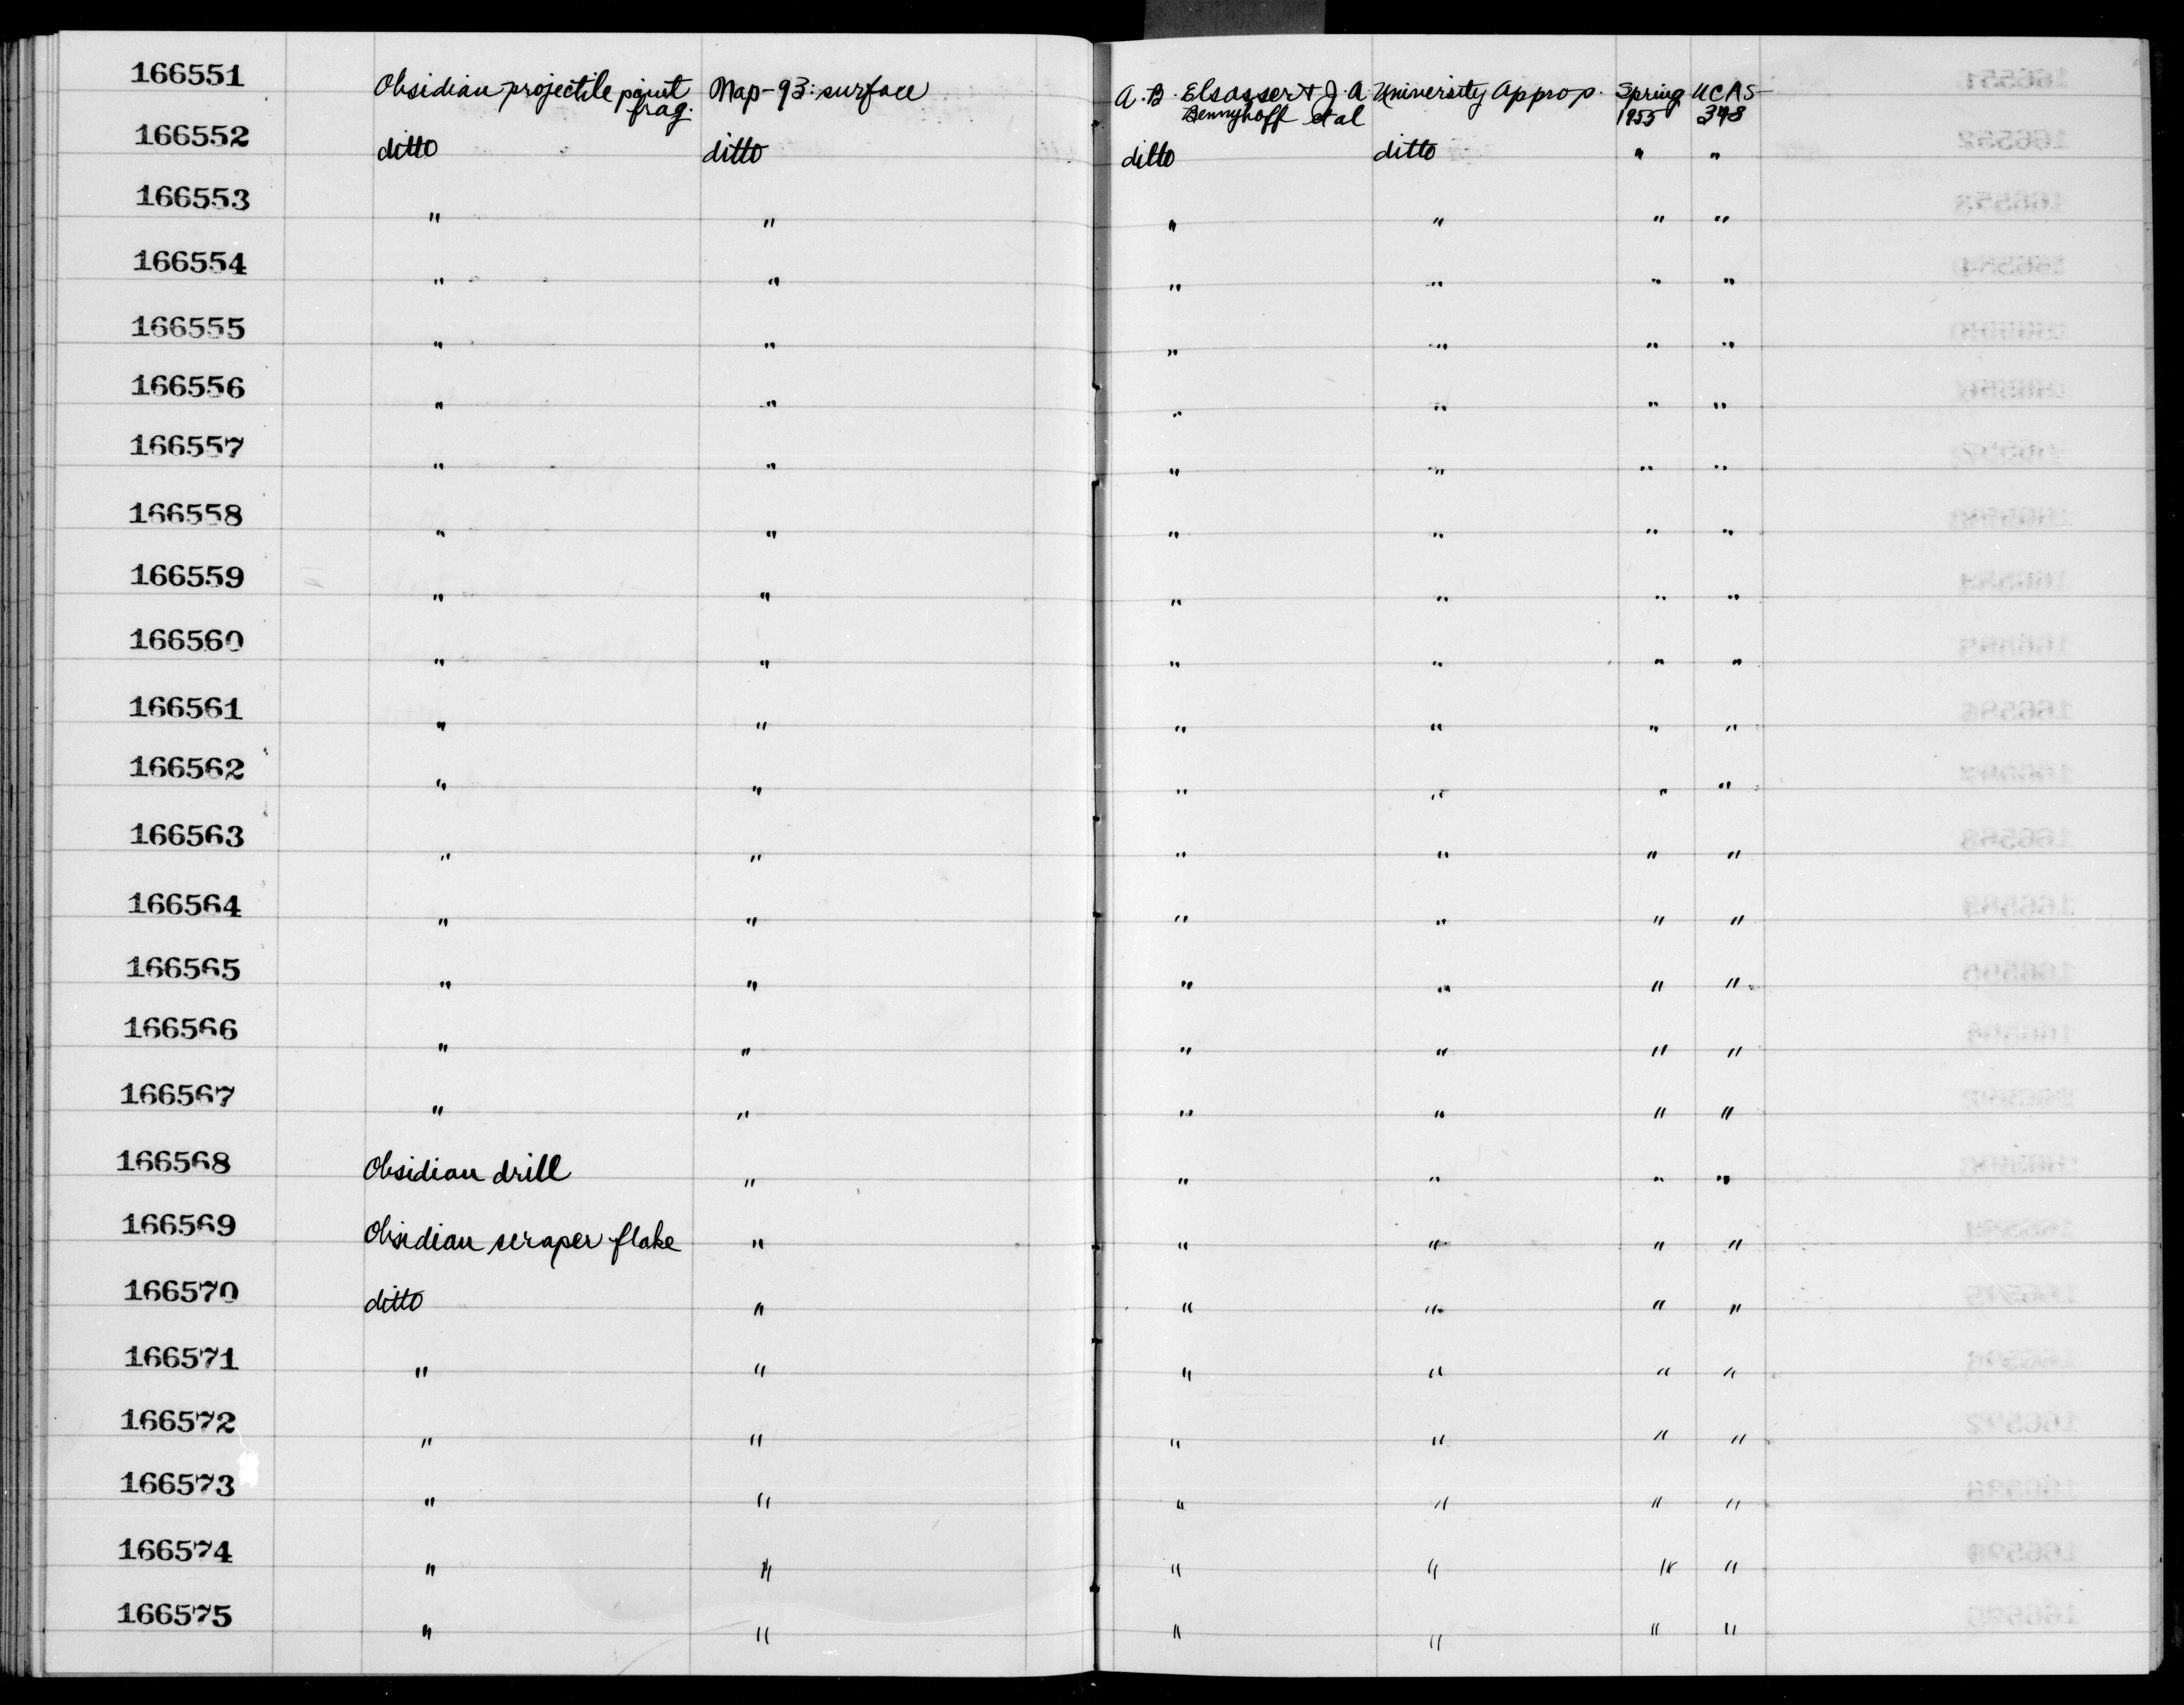 166551 Obsidian projectile point frag. Nap-93: surface A. B. Elsasser & J. A. Bennyhoff et al University Approp. Spring 1955 UCAS 348
166552 ditto ditto ditto ditto " "
166553 " " " " " "
166554 " " " " " "
166555 " " " " " "
166556 " " " " " "
166557 " " " " " "
166558 " " " " " "
166559 " " " " " "
166560 " " " " " "
166561 " " " " " "
166562 " " " " " "
166563 " " " " " "
166564 " " " " " "
166565 " " " " " "
166566 " " " " " "
166567 " " " " " "
166568 Obsidian drill " " " " "
166569 Obsidian scraper flake " " " " "
166570 ditto " " " " "
166571 " " " " " "
166572 " " " " " "
166573 " " " " " "
166574 " " " " " "
166575 " " " " " "